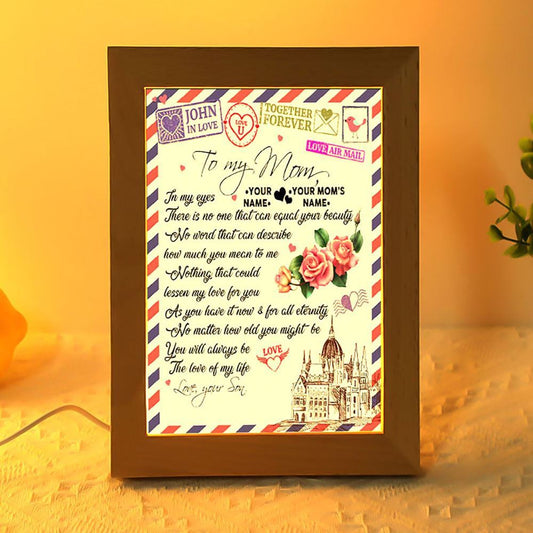 JOHN
IN LOVE
LOVE
U
TOGETHER
FOREVER
LOVE AIR MAIL
To my Mom,
In my eyes
•YOUR NAME•
•YOUR MOM'S NAME•
There is no one that can equal your beauty
No word that can describe
how much you mean to me
Nothing that could
lessen my love for you
As you have it now & for all eternity
No matter how old you might be
You will always be
The love of my life
LOVE
Love, your Son